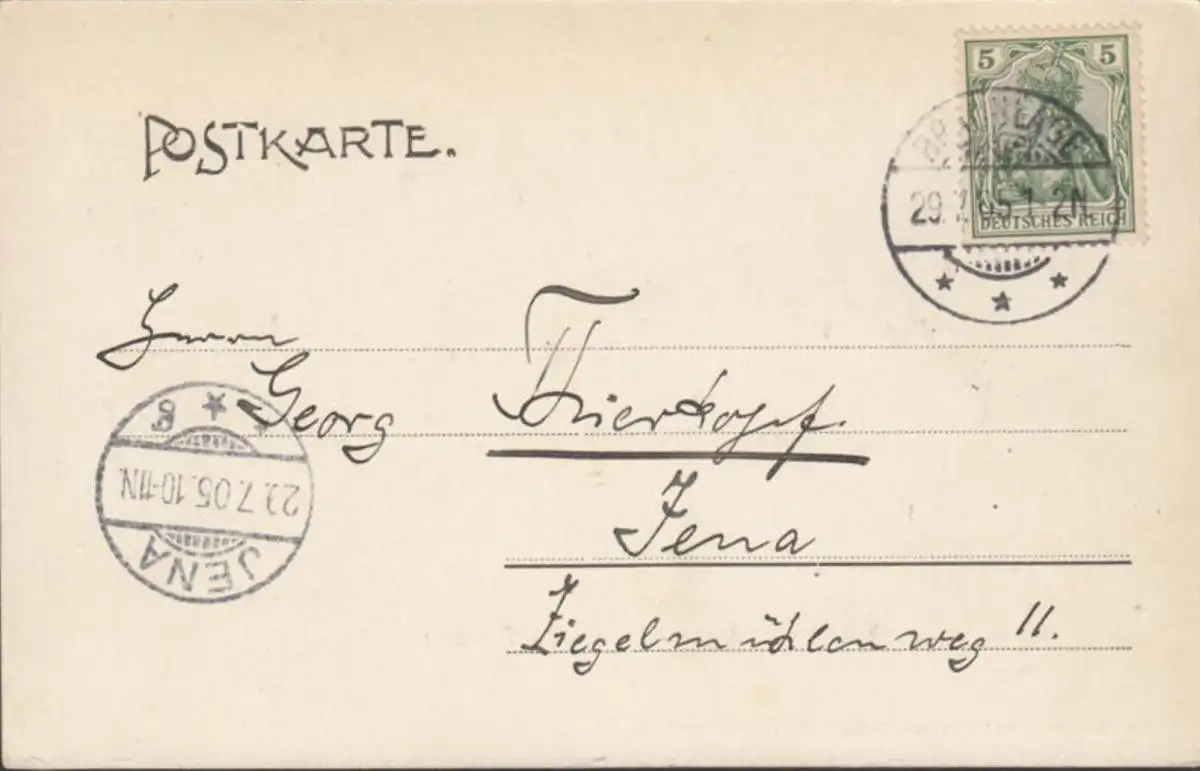 POSTKARTE.
5 5
DEUTSCHES REICH
BRAUNLAGE
29.7.05.1-2N.
Herrn
Georg Thierkopf.
Jena
Ziegelmühlenweg 11.
JENA
.7.05.10-11N.